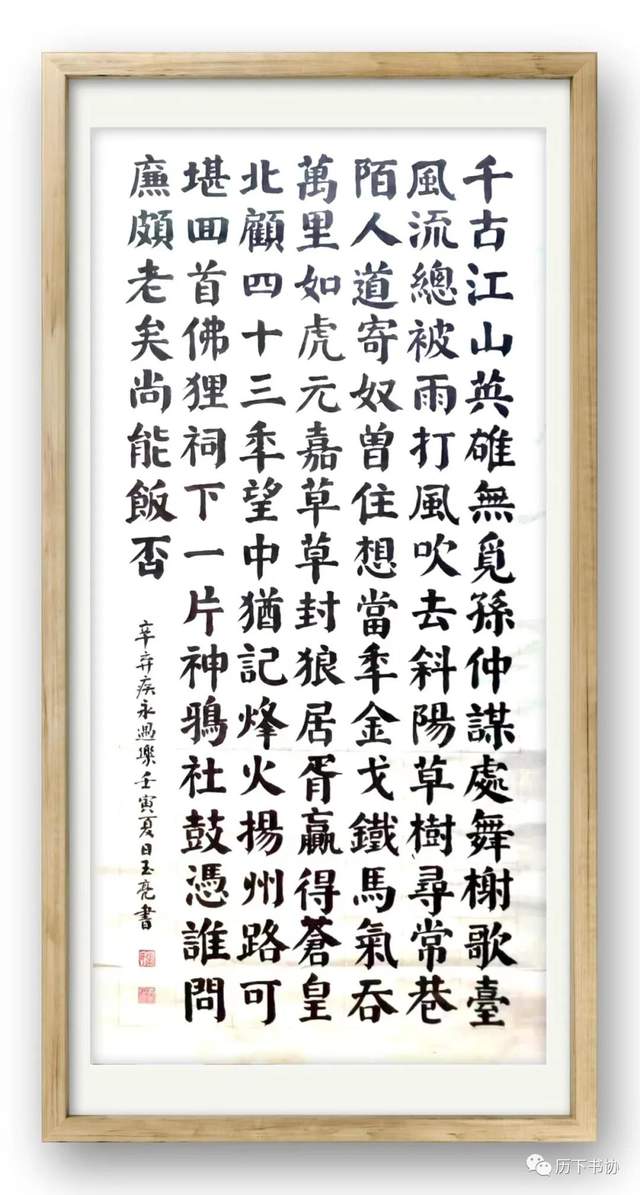 千古江山英雄無覓孫仲謀處舞榭歌臺
風流總被雨打風吹去斜陽草樹尋常巷
陌人道寄奴曾住想當秊金戈鐵馬氣吞
萬里如虎元嘉草草封狼居胥贏得蒼皇
北顧四十三秊望中猶記烽火揚州路可
堪回首佛狸祠下一片神鴉社鼓憑誰問
廉頗老矣尚能飯否
辛弃疾永遇樂壬寅夏日玉亮書
历下书协